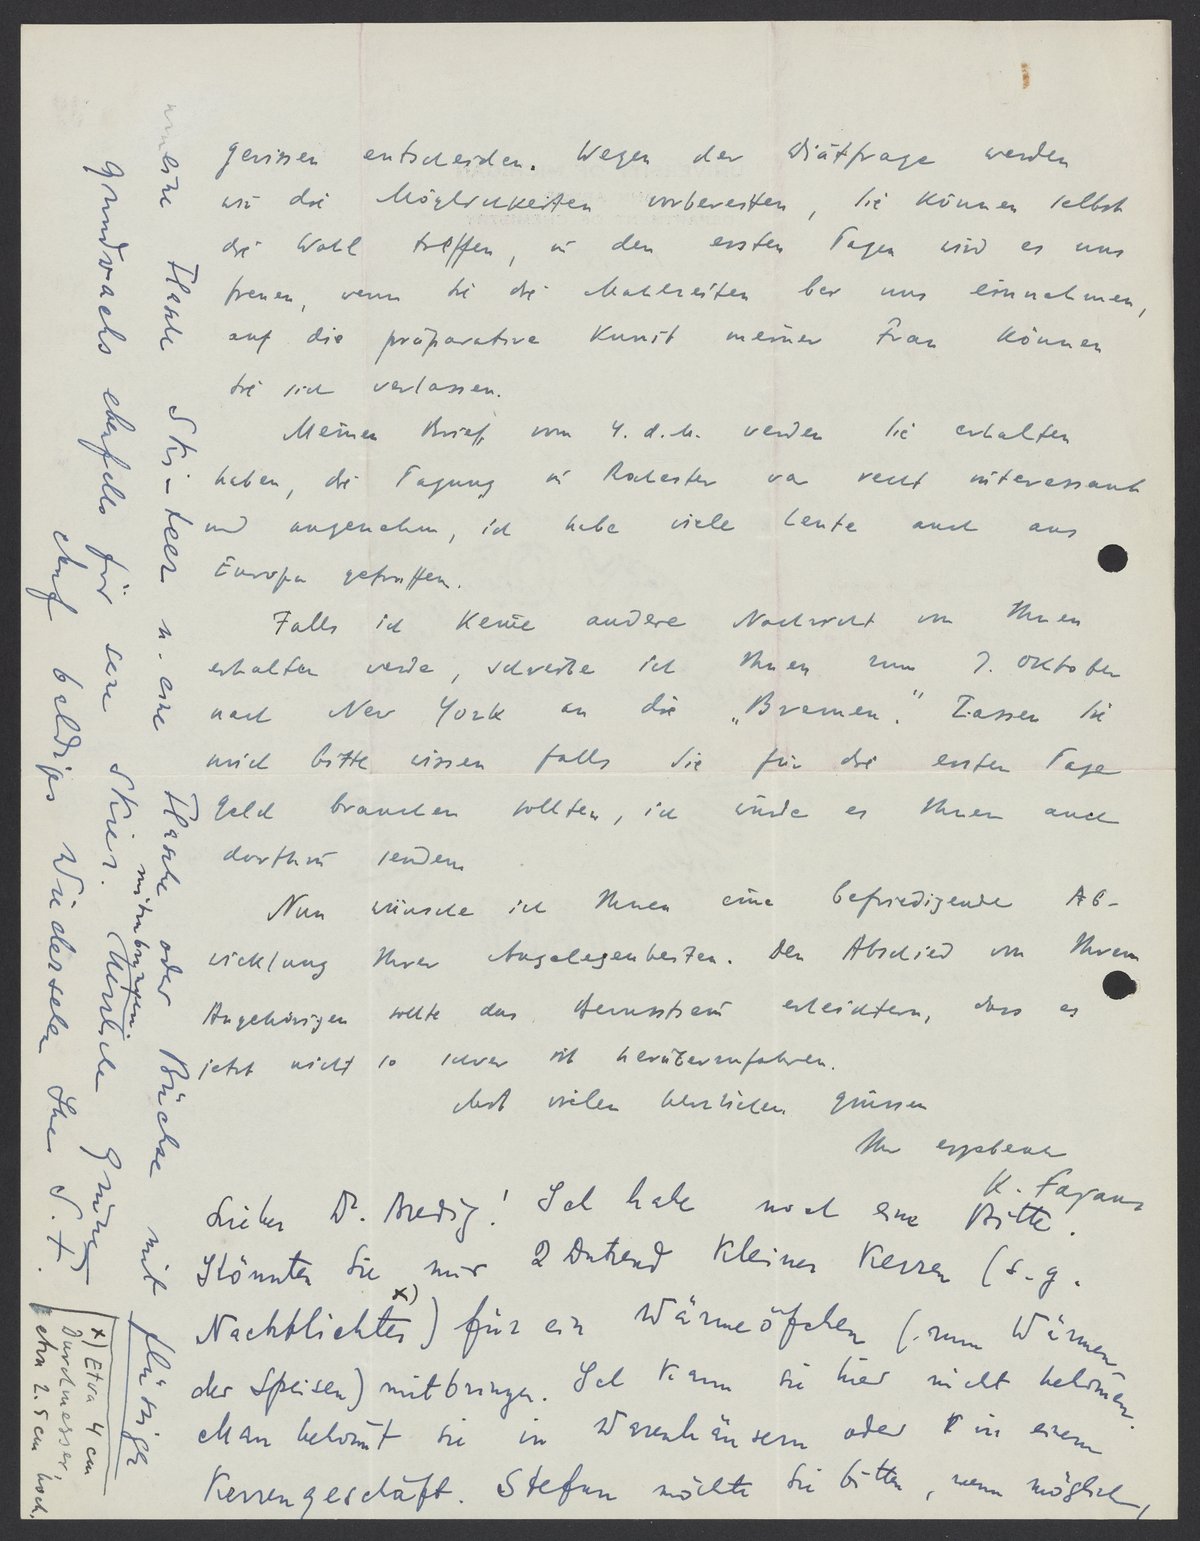 gerissen entscheiden. Wegen der Diätfrage werden
wir die Möglichkeiten vorbereiten, Sie können selbst
die Wahl treffen, in den ersten Tagen wird es uns
freuen, wenn Sie die Mahlzeiten bei uns einnehmen,
auf die präparative Kunst meiner Frau können
Sie sich verlassen.
Meinen Brief vom 4. d. M. werden Sie erhalten
haben, die Tagung in Rochester war recht interessant
und angenehm, ich habe viele Leute auch aus
Europa getroffen.
Falls ich keine andere Nachricht von Ihnen
erhalten werde, schreibe ich Ihnen zum 7. Oktober
nach New York an die „Bremen". Lassen Sie
mich bitte wissen falls Sie für die ersten Tage
Geld brauchen sollten, ich würde es Ihnen auch
dorthin senden.
Nun wünsche ich Ihnen eine befriedigende Ab-
wicklung Ihrer Angelegenheiten. Den Abschied von Ihren
Angehörigen sollte das Bewusstsein erleichtern, dass es
jetzt nicht so schwer ist herüberzufahren.
Mit vielen herzlichen Grüssen
Ihr ergebener
K. Fajans
Lieber Dr. Bredig! Ich habe noch eine Bitte.
Könnten Sie mir 2 Dutzend kleiner Kerzen (s. g.
Nachtlichter x)) für ein Wärmeöfchen (zum Wärmen
der Speisen) mitbringen. Ich kann sie hier nicht bekommen.
Man bekommt sie in Warenhäusern oder in einem
Kerzengeschäft. Stefan möchte Sie bitten, wenn möglich,
eine Flasche Ski-teer u. eine Flasche oder Büchse mit flüssigen
Grundwachs ebenfalls für seine Skier mitzubringen. Herzliche Grüsse
Auf baldiges Wiedersehen Ihre S. F.
x) Etwa 4 cm
Durchmesser,
etwa 2.5 cm hoch.